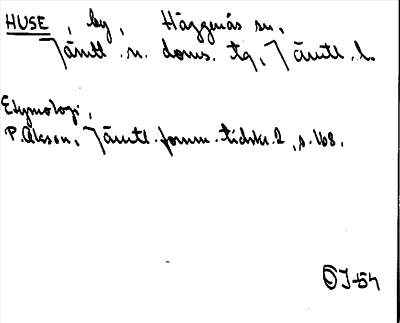 HUSE, by, Häggenås sn,
Jämtl. n. doms. tg, Jämtl. l.
Etymologi,
P. Olsson, Jämtl. fornm. tidskr. 2, s. 168.
OJ-54